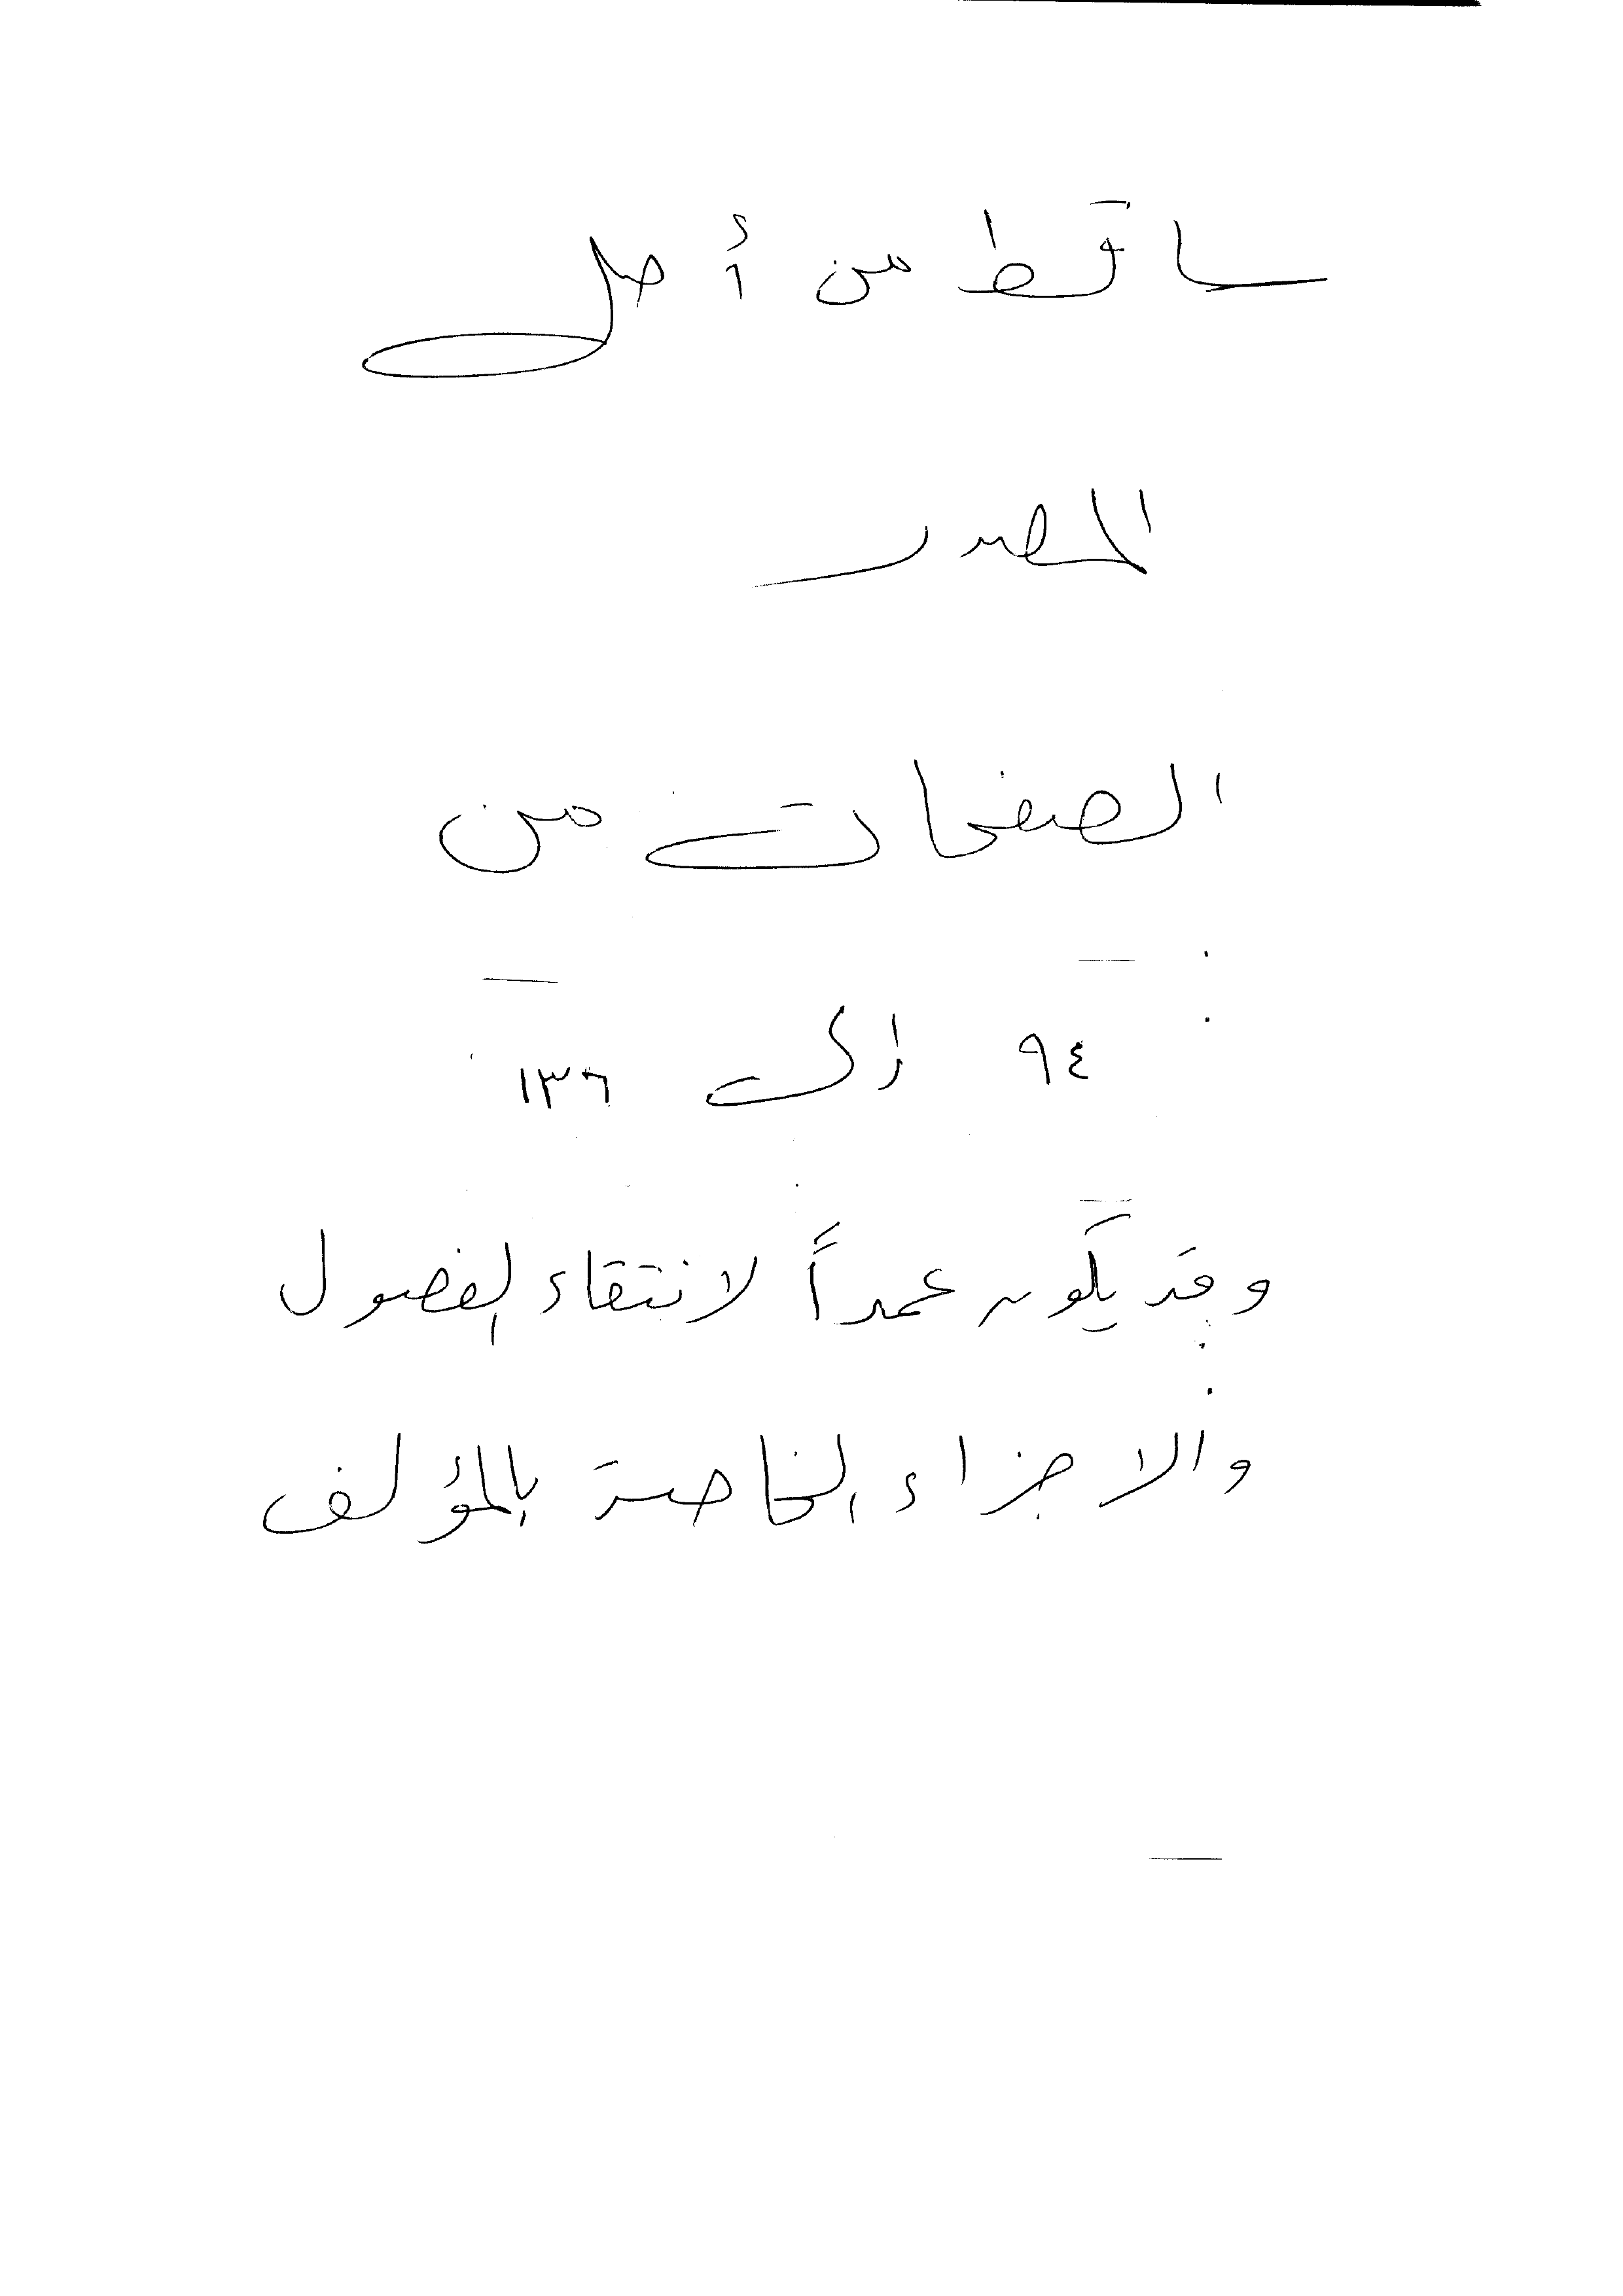 ساقط من أصل
المصدر
الصفحات من
٩٤ إلى ١٣٦
وقد يكون عمداً لانتقاء الفصول
والاجزاء الخاصة بالمؤلف